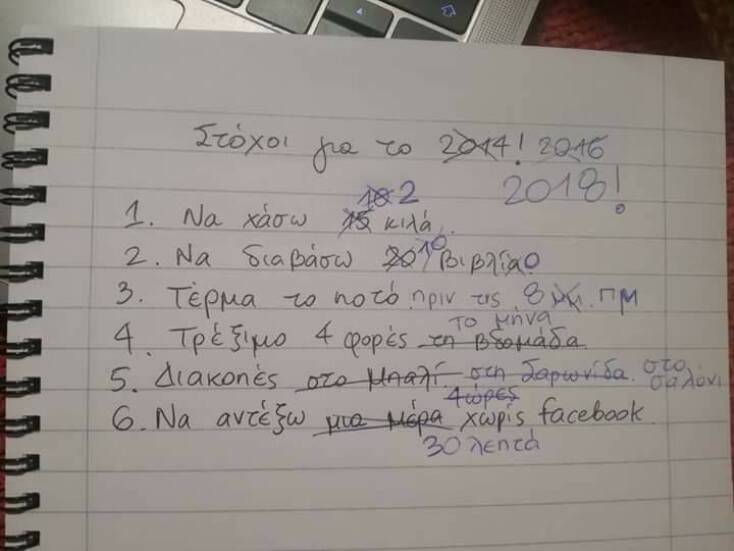 Στόχοι για το 2014! 2016
2018!
10 2
1. Να χάσω 15 κιλά.
2. Να διαβάσω 20 10 βιβλία
3. Τέρμα το ποτό πριν τις 8 μμ. πμ
το μήνα
4. Τρέξιμο 4 φορές τη βδομάδα.
5. Διακοπές στο Μπαλί στη Σαρωνίδα. στο
σαλόνι
4 ώρες
6. Να αντέξω μια μέρα χωρίς facebook.
30 λεπτά